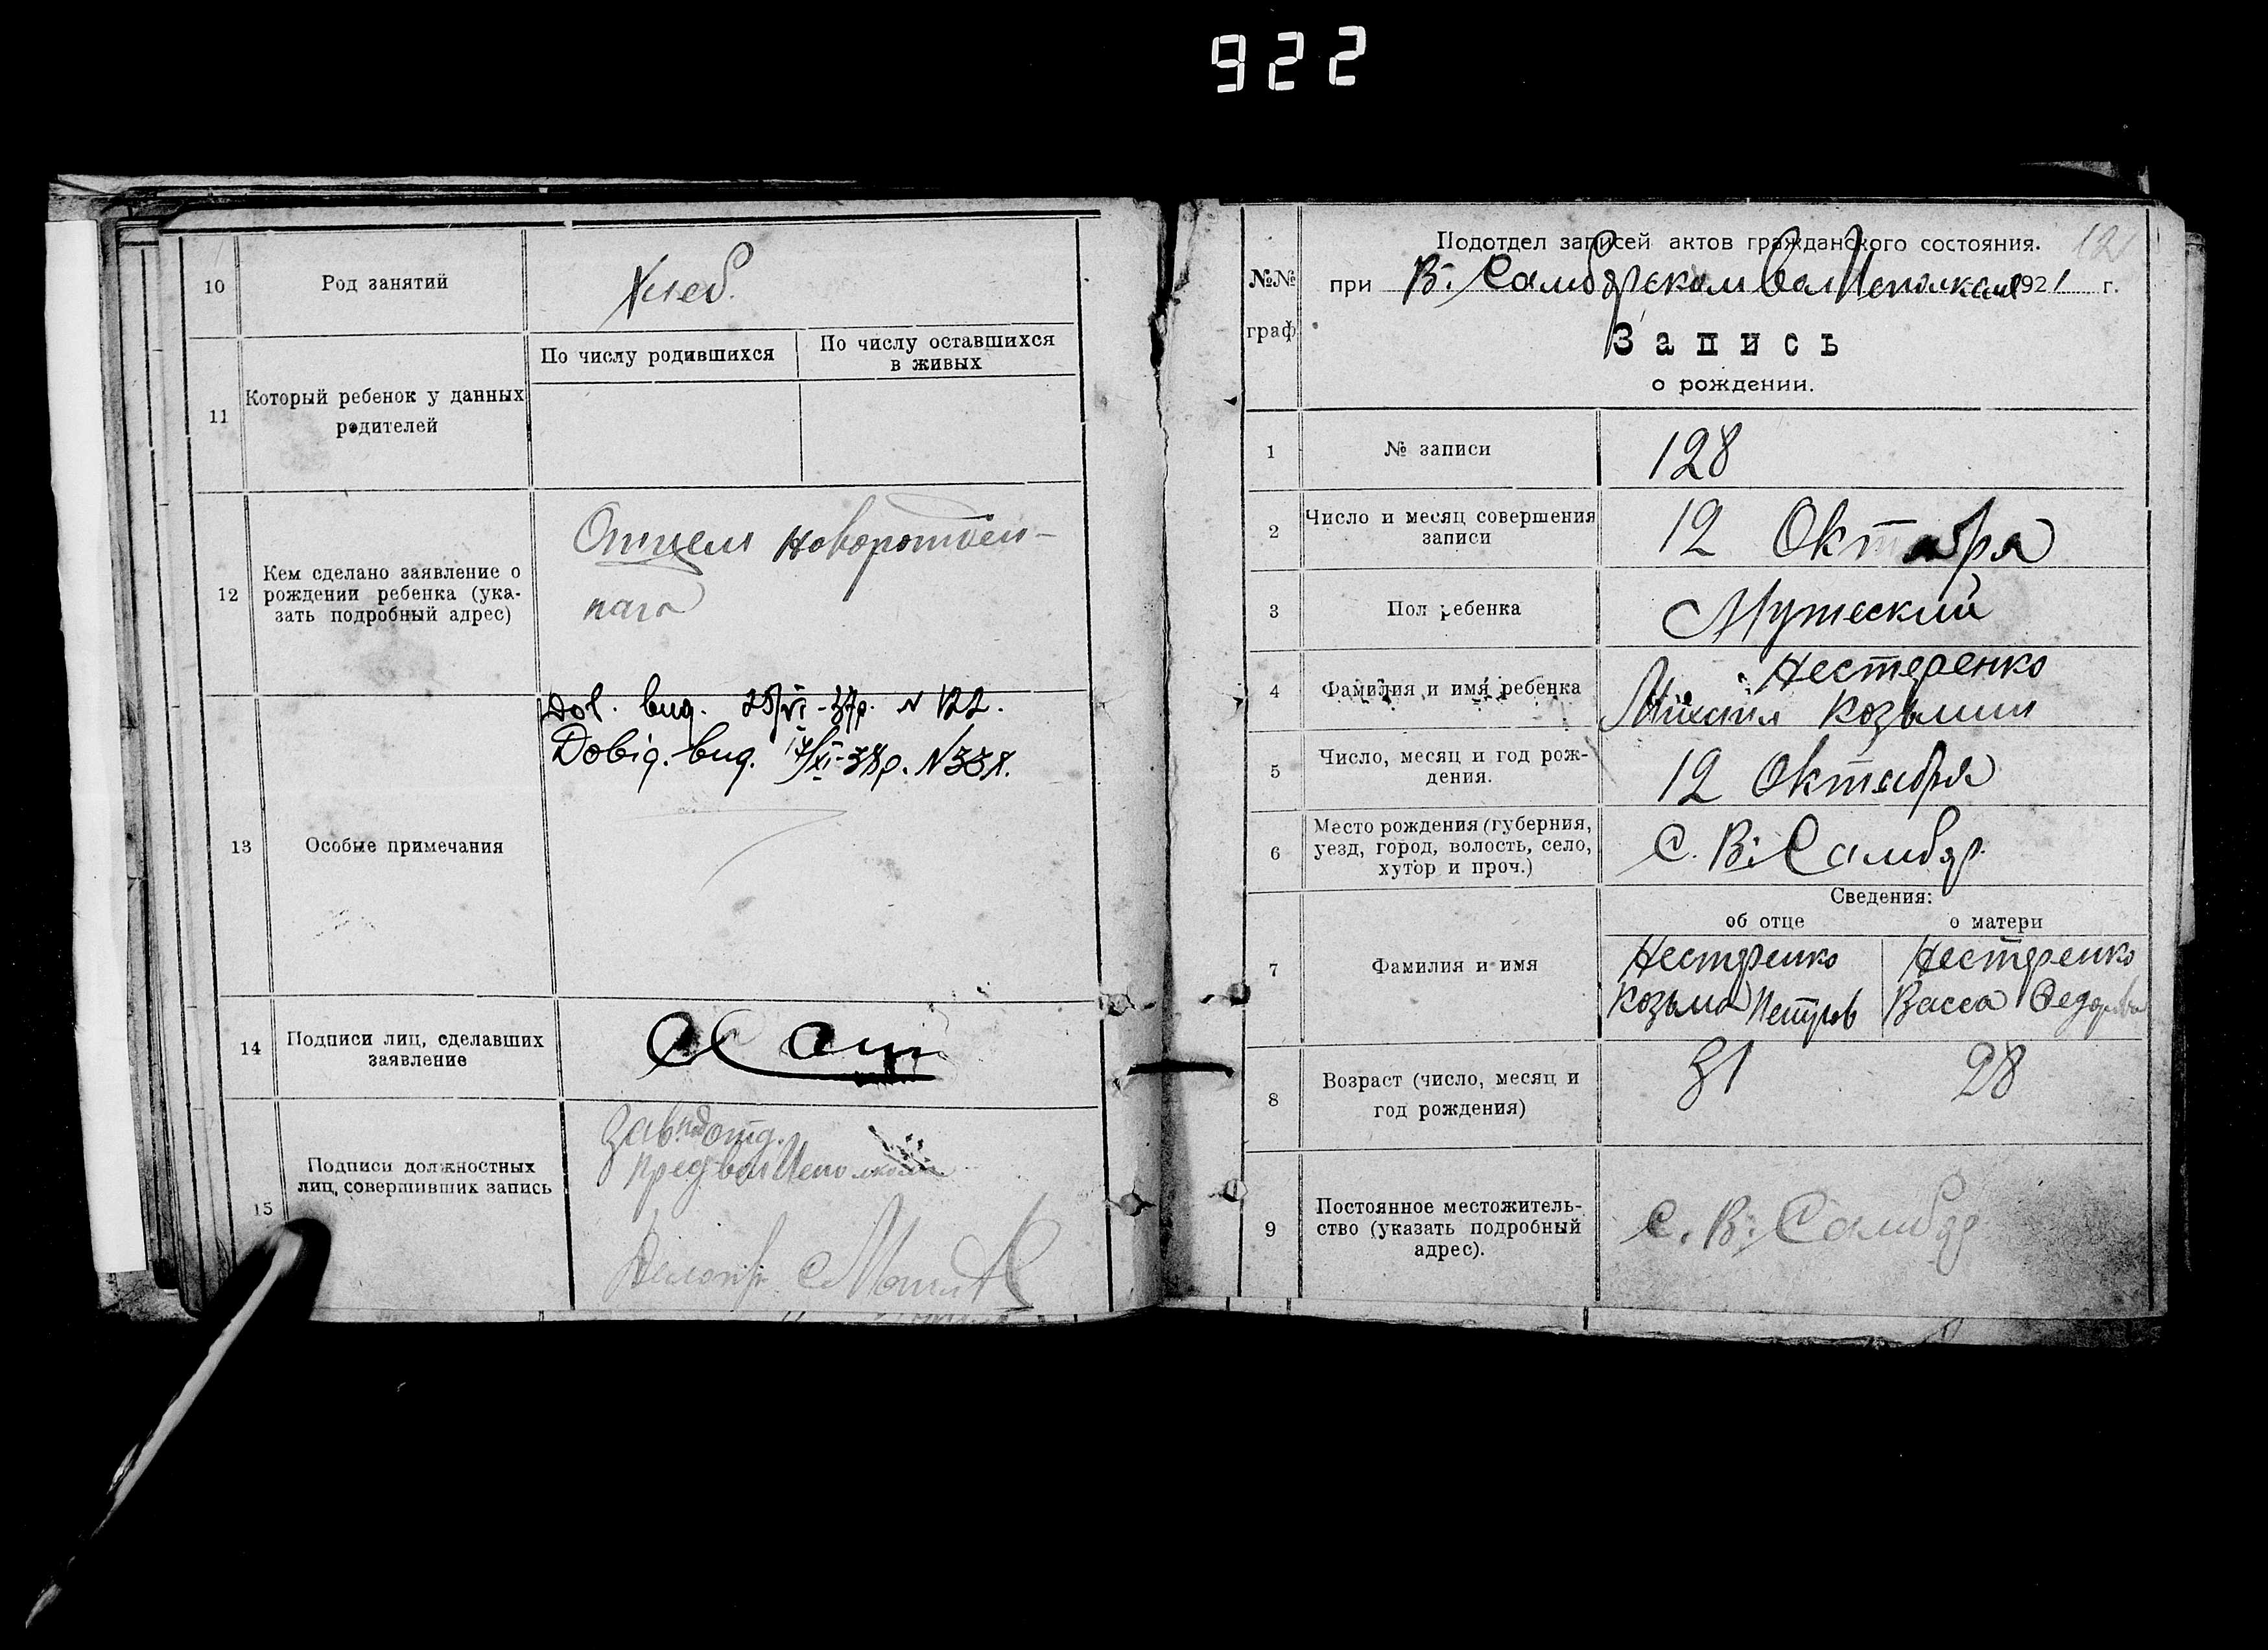 922
10
Род занятий
Хлеб.
11
Который ребенок у данных
родителей
По числу родившихся
По числу оставшихся
в живых
12
Кем сделано заявление о
рождении ребенка (ука-
зать подробный адрес)
Отцем новорожден-
наго
13
Особые примечания
Dov. вид. 25/VI-37р. N 122.
Довід. вид. 17/XI-38р. N 338.
14
Подписи лиц, сделавших
заявление
15
Подписи должностных
лиц, совершивших запись
Зав. подотд.
Пред волИсполкома
Делопр.
121
№№
граф
Подотдел записей актов гражданского состояния.
при В: Самборском ВолИсполкоме 1921 г.
Запись
о рождении.
1
№ записи
128
2
Число и месяц совершения
записи
12 Октября
3
Пол ребенка
Мужеский
4
Фамилия и имя ребенка
Нестеренко
Михаил Козьмин
5
Число, месяц и год рож-
дения.
12 Октября
6
Место рождения (губерния,
уезд, город, волость, село,
хутор и проч.)
С. В: Самбор.
Сведения:
об отце
о матери
7
Фамилия и имя
Нестеренко
Козьма Петров
Нестеренко
Васса Федоровна
8
Возраст (число, месяц и
год рождения)
31
28
9
Постоянное местожитель-
ство (указать подробный
адрес).
С. В: Самбор